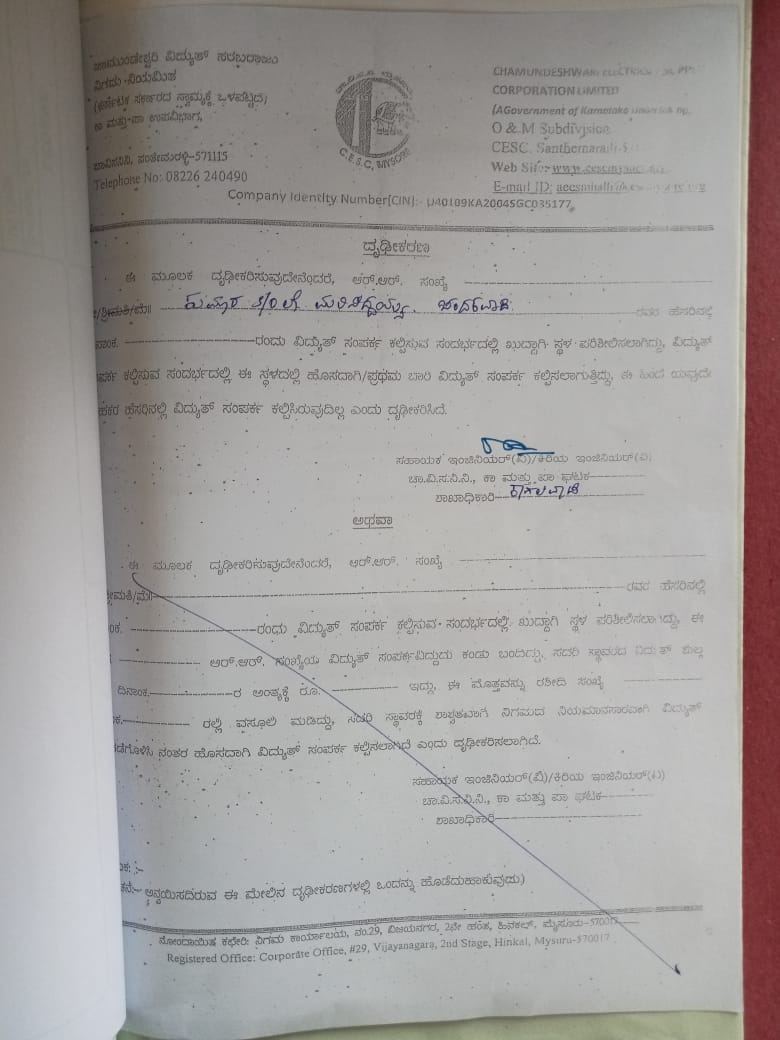 ಚಾಮುಂಡೇಶ್ವರಿ ವಿದ್ಯುತ್ ಸರಬರಾಜು
ನಿಗಮ-ನಿಯಮಿತ
(ಕರ್ನಾಟಕ ಸರ್ಕಾರದ ಸ್ವಾಮ್ಯಕ್ಕೆ ಒಳಪಟ್ಟಿದೆ)
ಕಾ ಮತ್ತು-ಪಾ ಉಪವಿಭಾಗ,
ಚಾವಿಸನಿನಿ, ಸಂತೇಮರಳ್ಳಿ-571115
Telephone No: 08226 240490
C.E.S.C, MYSORE
CHAMUNDESHWARI
CORPORATION LIMITED
(AGovernment of Karnataka
O & M Subdivision
CESC, Santhemaralli
Web Site:
E-mail ID:
Company Identity Number(CIN):- U40109KA2004SGC035177
ದೃಢೀಕರಣ
ಈ ಮೂಲಕ ದೃಢೀಕರಿಸುವುದೇನೆಂದರೆ, ಆರ್.ಆರ್. ಸಂಖ್ಯೆ
/ಶ್ರೀಮತಿ/ಮೆ॥ ಕುಮಾರ ರವರ ಹೆಸರಿನಲ್ಲಿ
ನಾಂಕ. ರಂದು ವಿದ್ಯುತ್ ಸಂಪರ್ಕ ಕಲ್ಪಿಸುವ ಸಂದರ್ಭದಲ್ಲಿ ಖುದ್ದಾಗಿ ಸ್ಥಳ ಪರಿಶೀಲಿಸಲಾಗಿದ್ದು, ವಿದ್ಯುತ್
ಪರ್ಕ ಕಲ್ಪಿಸುವ ಸಂದರ್ಭದಲ್ಲಿ ಈ ಸ್ಥಳದಲ್ಲಿ ಹೊಸದಾಗಿ/ಪ್ರಥಮ ಬಾರಿ ವಿದ್ಯುತ್ ಸಂಪರ್ಕ ಕಲ್ಪಿಸಲಾಗುತ್ತಿದ್ದು, ಈ ಹಿಂದೆ ಯಾವುದೇ
ಹಕರ ಹೆಸರಿನಲ್ಲಿ ವಿದ್ಯುತ್ ಸಂಪರ್ಕ ಕಲ್ಪಿಸಿರುವುದಿಲ್ಲ ಎಂದು ದೃಢೀಕರಿಸಿದೆ.
ಸಹಾಯಕ ಇಂಜಿನಿಯರ್(ವಿ)/ಕಿರಿಯ ಇಂಜಿನಿಯರ್(ವಿ)
ಚಾ.ವಿ.ಸ.ನಿ.ನಿ., ಕಾ ಮತ್ತು ಪಾ ಘಟಕ
ಶಾಖಾಧಿಕಾರಿ
ಅಥವಾ
ಈ ಮೂಲಕ ದೃಢೀಕರಿಸುವುದೇನೆಂದರೆ, ಆರ್.ಆರ್. ಸಂಖ್ಯೆ
ಶ್ರೀಮತಿ/ಮೆ॥ ರವರ ಹೆಸರಿನಲ್ಲಿ
ಂಕ. ರಂಧು ವಿದ್ಯುತ್ ಸಂಪರ್ಕ ಕಲ್ಪಿಸುವ ಸಂದರ್ಭದಲ್ಲಿ ಖುದ್ದಾಗಿ ಸ್ಥಳ ಪರಿಶೀಲಿಸಲಾಗಿದ್ದು, ಈ
ಆರ್.ಆರ್. ಸಂಖ್ಯೆಯ ವಿದ್ಯುತ್ ಸಂಪರ್ಕವಿದ್ದುದು ಕಂಡು ಬಂದಿದ್ದು, ಸದರಿ ಸ್ಥಾವರದ ವಿದ್ಯುತ್ ಶುಲ್ಕ
ದಿನಾಂಕ. ರ ಅಂತ್ಯಕ್ಕೆ ರೂ. ಇದ್ದು, ಈ ಮೊತ್ತವನ್ನು ರಶೀದಿ ಸಂಖ್ಯೆ
ಕ. ರಲ್ಲಿ ವಸೂಲಿ ಮಾಡಿದ್ದು, ಸದರಿ ಸ್ಥಾವರಕ್ಕೆ ಶಾಶ್ವತವಾಗಿ ನಿಗಮದ ನಿಯಮಾನುಸಾರವಾಗಿ ವಿದ್ಯುತ್
ಡೆಗೊಳಿಸಿ ನಂತರ ಹೊಸದಾಗಿ ವಿದ್ಯುತ್ ಸಂಪರ್ಕ ಕಲ್ಪಿಸಲಾಗಿದೆ ಎಂದು ದೃಢೀಕರಿಸಲಾಗಿದೆ.
ಸಹಾಯಕ ಇಂಜಿನಿಯರ್(ವಿ)/ಕಿರಿಯ ಇಂಜಿನಿಯರ್(ವಿ)
ಚಾ.ವಿ.ಸ.ನಿ.ನಿ., ಕಾ ಮತ್ತು ಪಾ ಘಟಕ
ಶಾಖಾಧಿಕಾರಿ
ಕ: :-
ಅನ್ವಯಿಸದಿರುವ ಈ ಮೇಲಿನ ದೃಢೀಕರಣಗಳಲ್ಲಿ ಒಂದನ್ನು ಹೊಡೆದುಹಾಕುವುದು)
ನೋಂದಾಯಿತ ಕಛೇರಿ: ನಿಗಮ ಕಾರ್ಯಾಲಯ, ನಂ.29, ವಿಜಯನಗರ, 2ನೇ ಹಂತ, ಹಿನಕಲ್, ಮೈಸೂರು-570017
Registered Office: Corporate Office, #29, Vijayanagara, 2nd Stage, Hinkal, Mysuru-570017